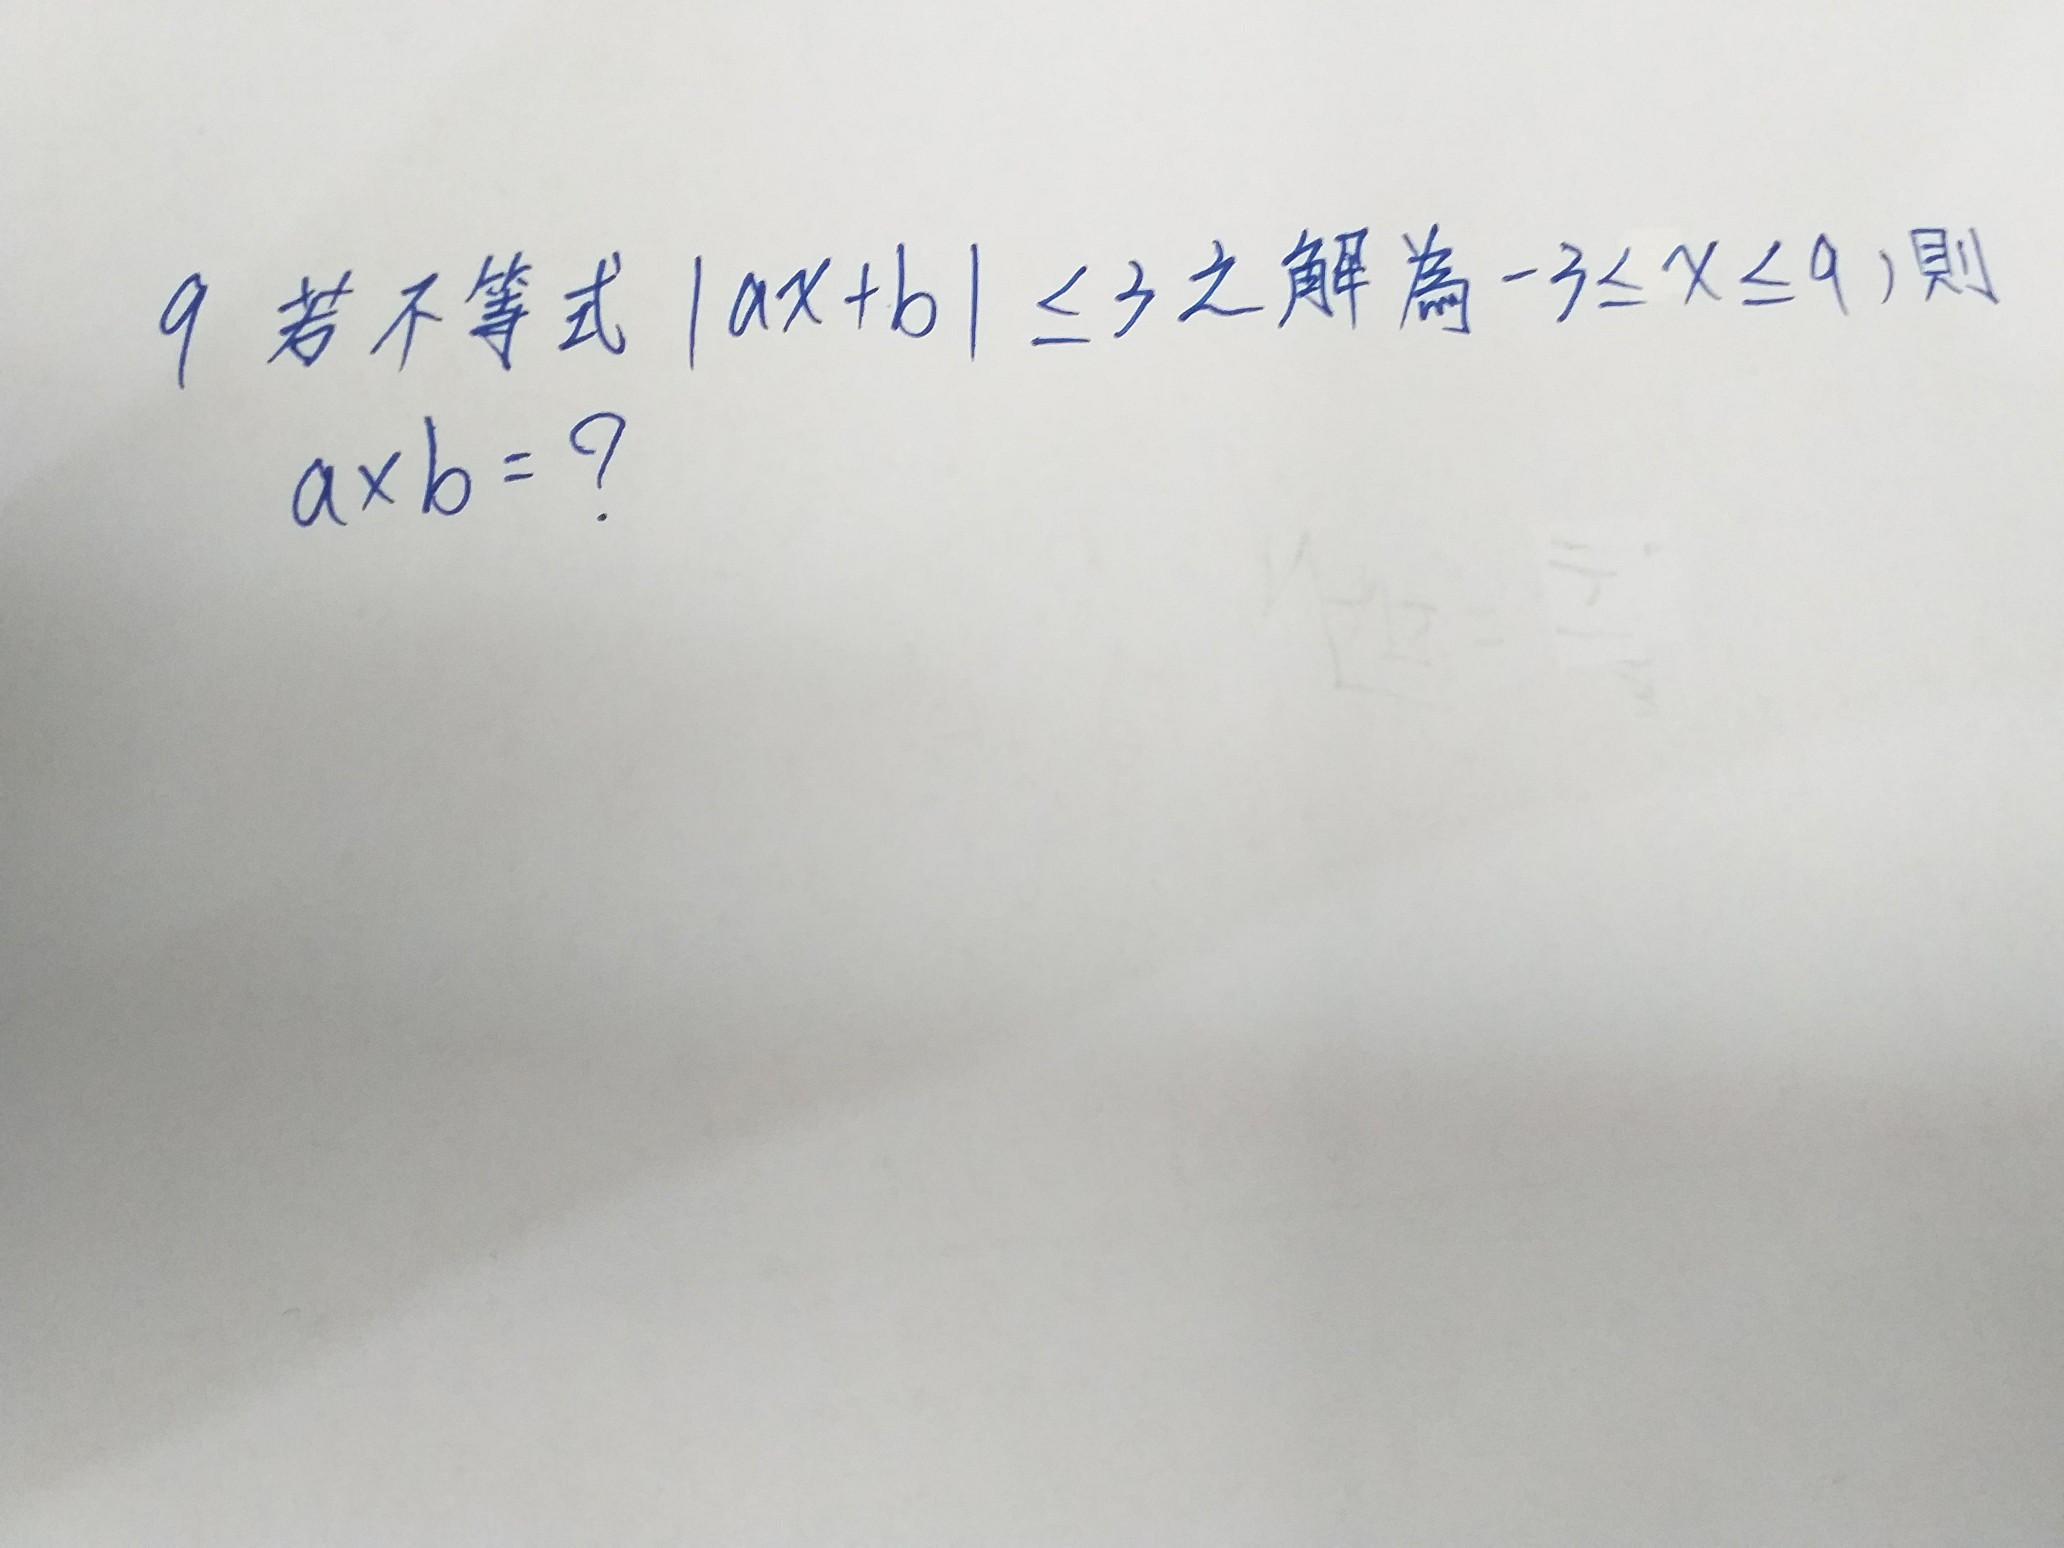 9 若不等式 |ax+b| ≤3之解為-3≤x≤9,則
a×b=?